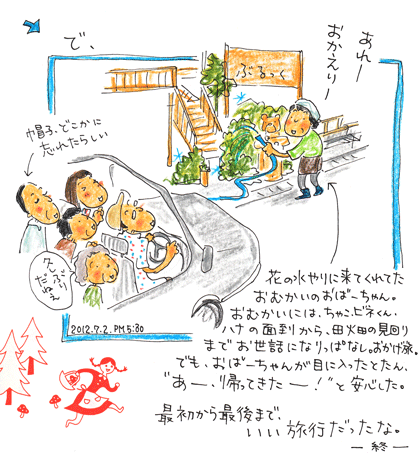 で、
あれー
おかえりー
ぶるっく
帽子、どこかに
忘れたらしい
久しぶり
だねぇ
2012.7.2. PM5:30
花の水やりに来てくれてた
おむかいのおばーちゃん。
おむかいには、ちゃこ、ビネくん、
ハナの面到から、田水田の見回り
までお世話になりっぱなし。おかげ旅。
でも、おばーちゃんが目に入ったとたん、
“あー、帰ってきたー！”と安心した。
最初から最後まで、
いい旅行だったな。
ー終ー